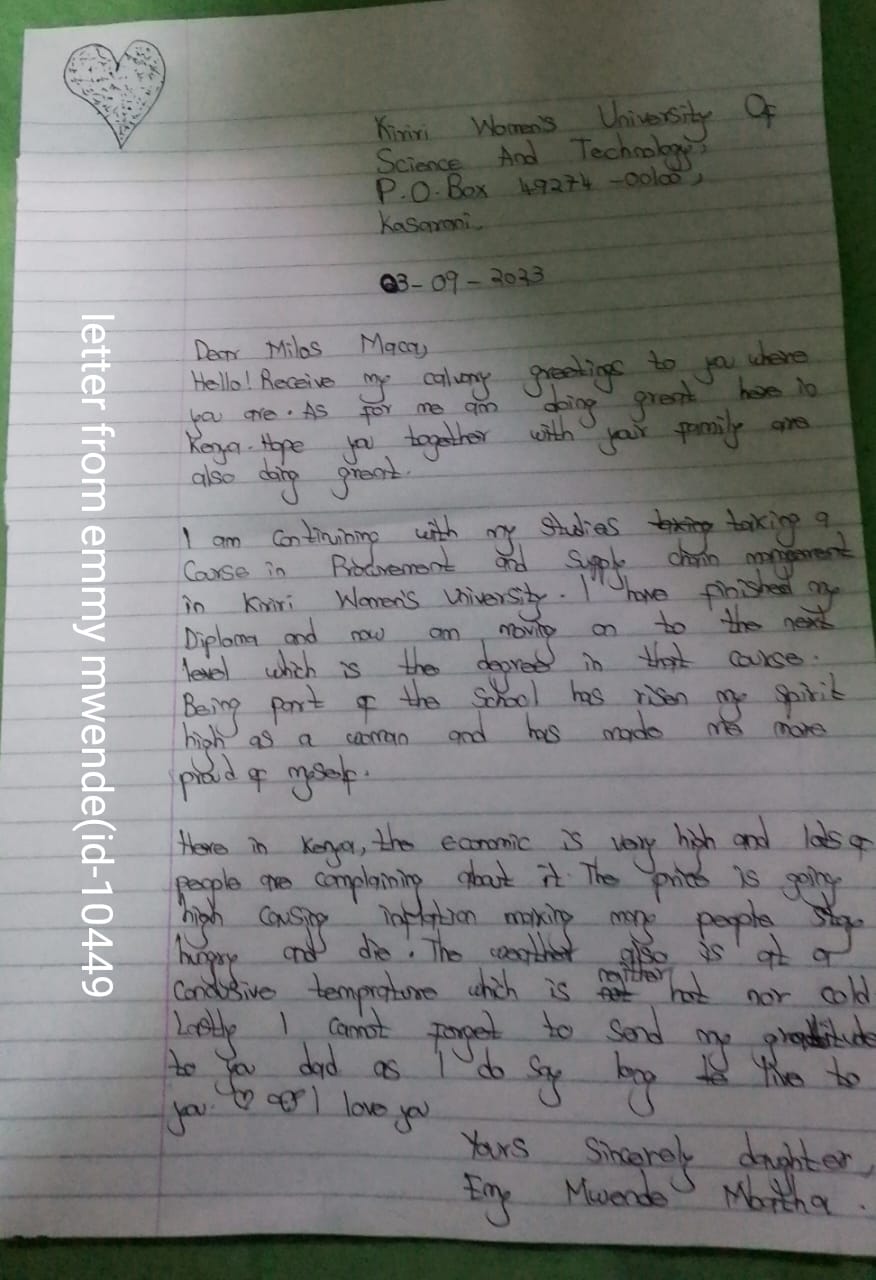 Kiriri Women's University Of
Science And Technology,
P.O.Box 49274 -00100,
Kasarani.
03-09-2023
Dear Milos Maca,
Hello! Receive my calvary greetings to you where
you are. As for me am doing great here in
Kenya. Hope you together with your family are
also doing great.
I am continining with my studies taking a
Course in Procurement and Supply chain mangement
in Kiriri Women's University. I have finished my
Diploma and now am moving on to the next
level which is the degree in that course.
Being part of the School has risen my spirit
high as a woman and has made me more
proud of myself.
Here in Kenya, the economic is very high and lots of
people are complaining about it. The price is going
high causing inflation making many people stay
hungry and die. The weather also is at a
Conducive temprature which is neither hot nor cold
Lastly I cannot forget to send my gratitude
to you dad as I do say long live to
you. I love you
Yours Sincerely daughter,
Emy Mwende Martha.
letter from emmy mwende(id-10449